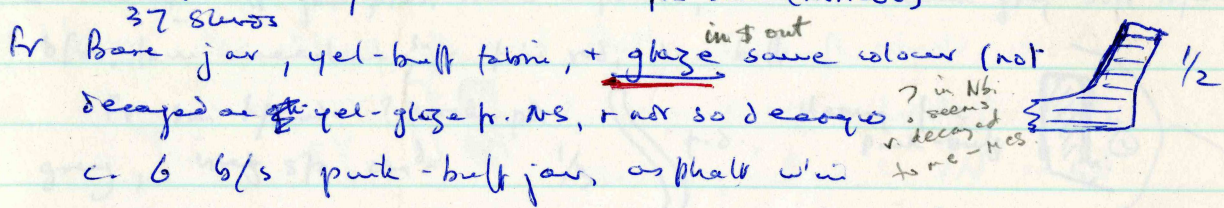 37 sherds
Fr Base jar, yel-buff fabric, + glaze in & out same colour (not 1/2
decayed as yel-glaze fr. NS, + not so decayed ? in Nbi. seems v. decayed to me - Mes.
c. 6 b/s pink-buff jar, asphalt w'in